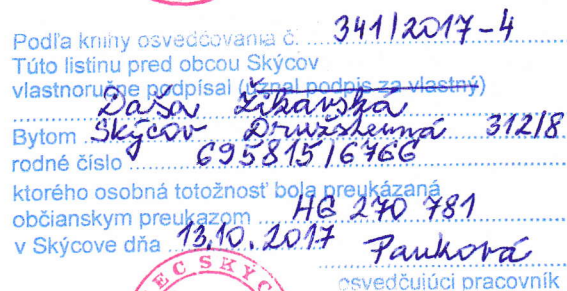 Podľa knihy osvedčovania č. 341/2017-4
Túto listinu pred obcou Skýcov
vlastnoručne podpísal (uznal podpis za vlastný)
Daša Žikavská
Bytom Skýcov Družstevná 312/8
rodné číslo 695815/6766
ktorého osobná totožnosť bola preukázaná
občianskym preukazom HG 270 781
v Skýcove dňa 13.10.2017 Pauková
EC SKÝC
osvedčujúci pracovník